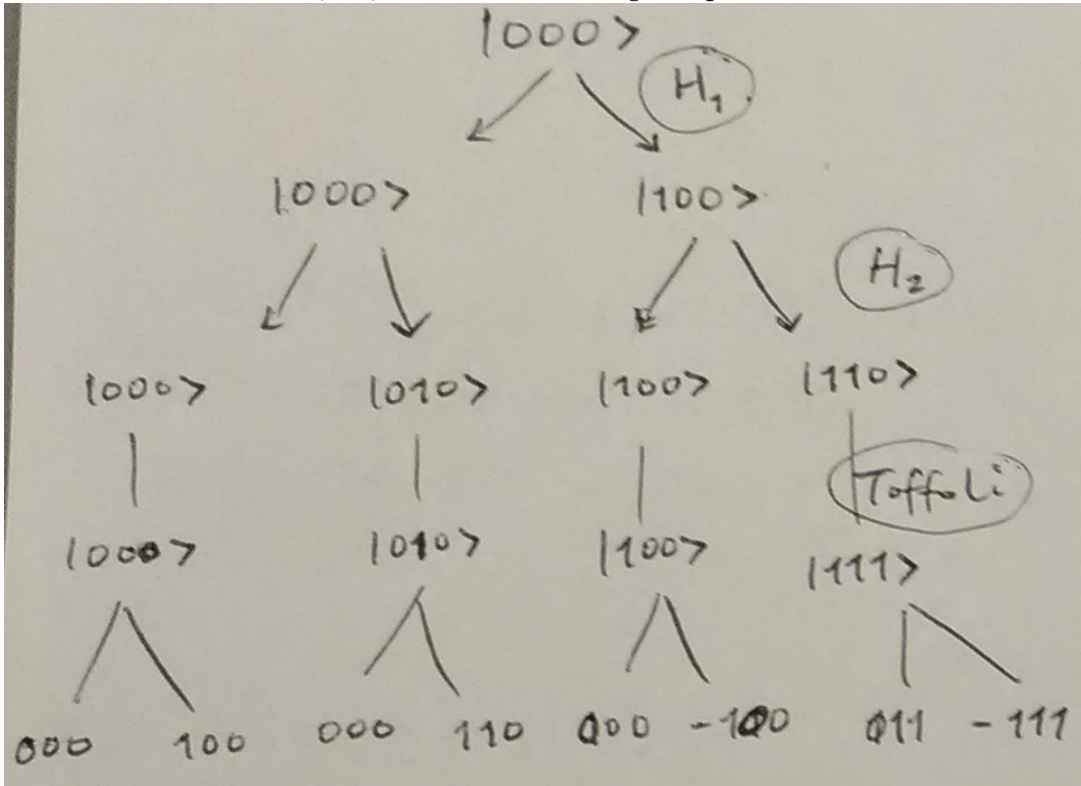 |000>
H₁
|000> |100>
H₂
|000> |010> |100> |110>
Toffoli
|000> |010> |100> |111>
000 100 000 110 000 -100 011 -111